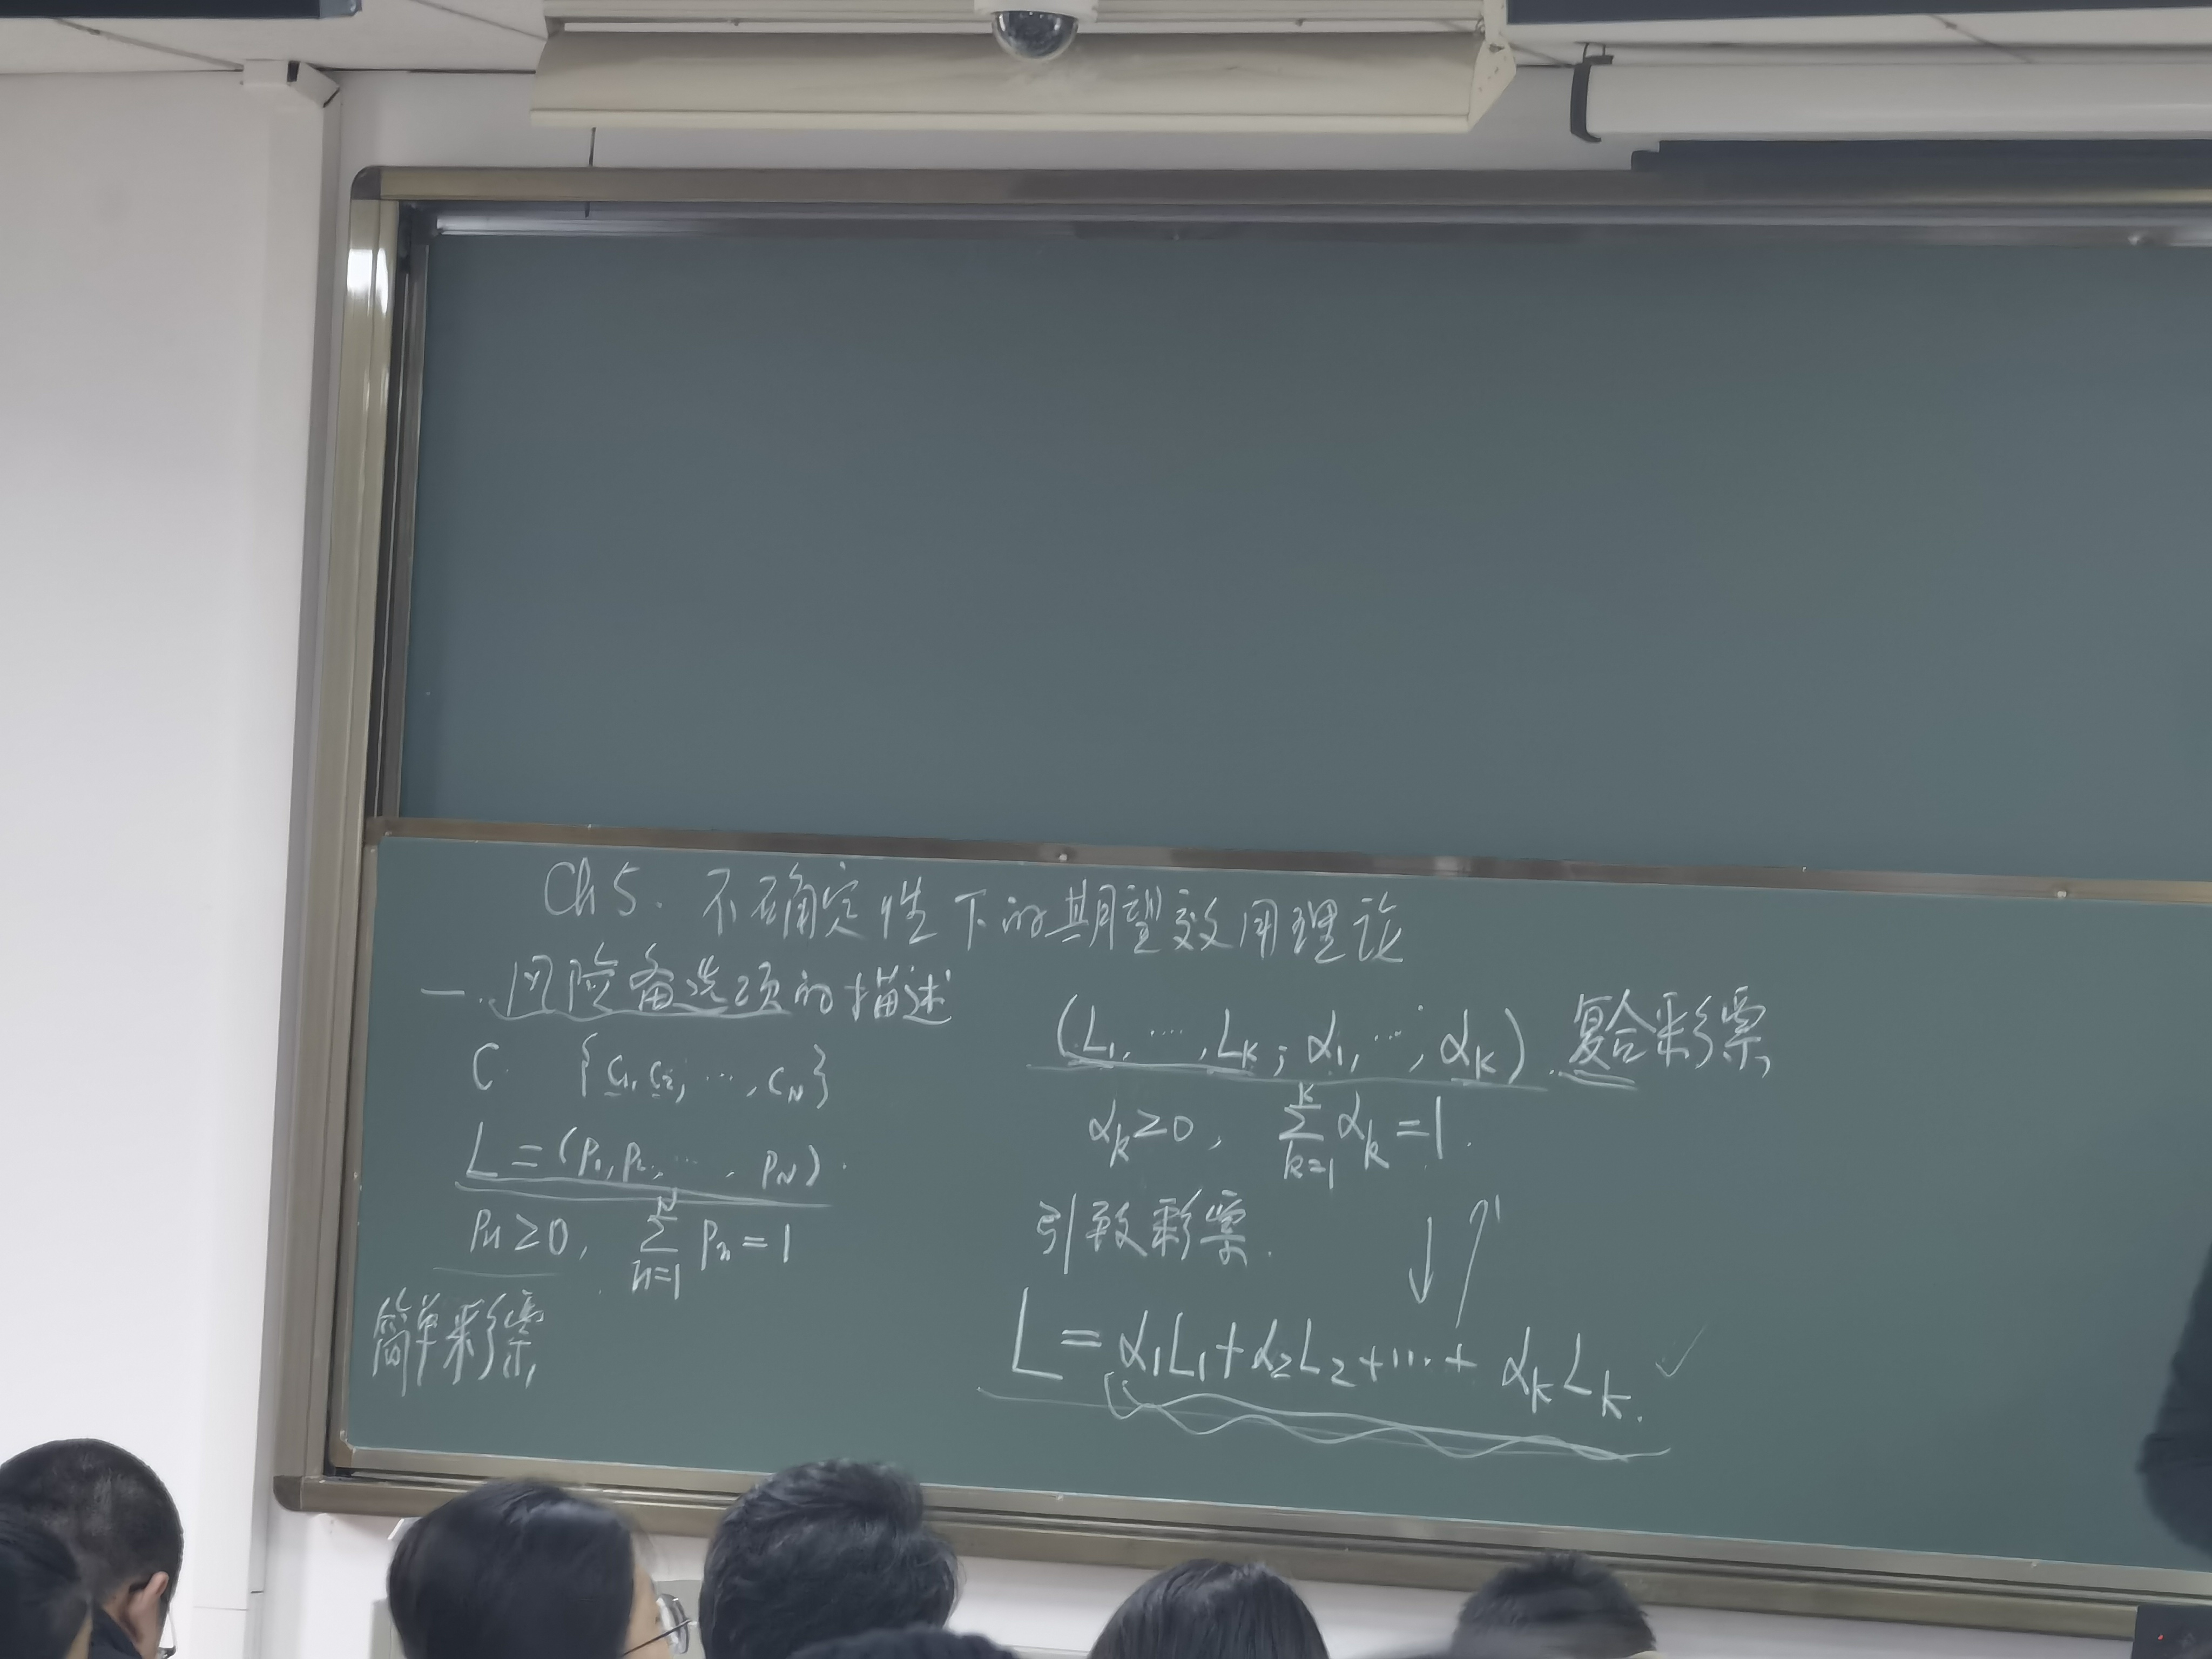 Ch 5. 不确定性下的期望效用理论
一. 风险备选项的描述
C {C₁, C₂, ⋯, C_N}
L = (P₁, P₂, ⋯, P_N).
Pₙ ≥ 0, ∑_{n=1}^{N} Pₙ = 1
简单彩票
(L₁, ⋯, L_K; α₁, ⋯, α_K). 复合彩票
α_k ≥ 0, ∑_{k=1}^{K} α_k = 1.
引致彩票. ↓↑
L = α₁L₁ + α₂L₂ + ⋯ + α_K L_K. ✓